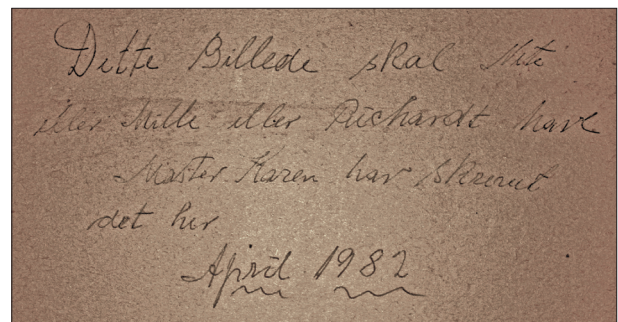 Dette Billede skal Mette
eller Mille eller Richardt have
Moster Karen har skrevet
det her
April 1982